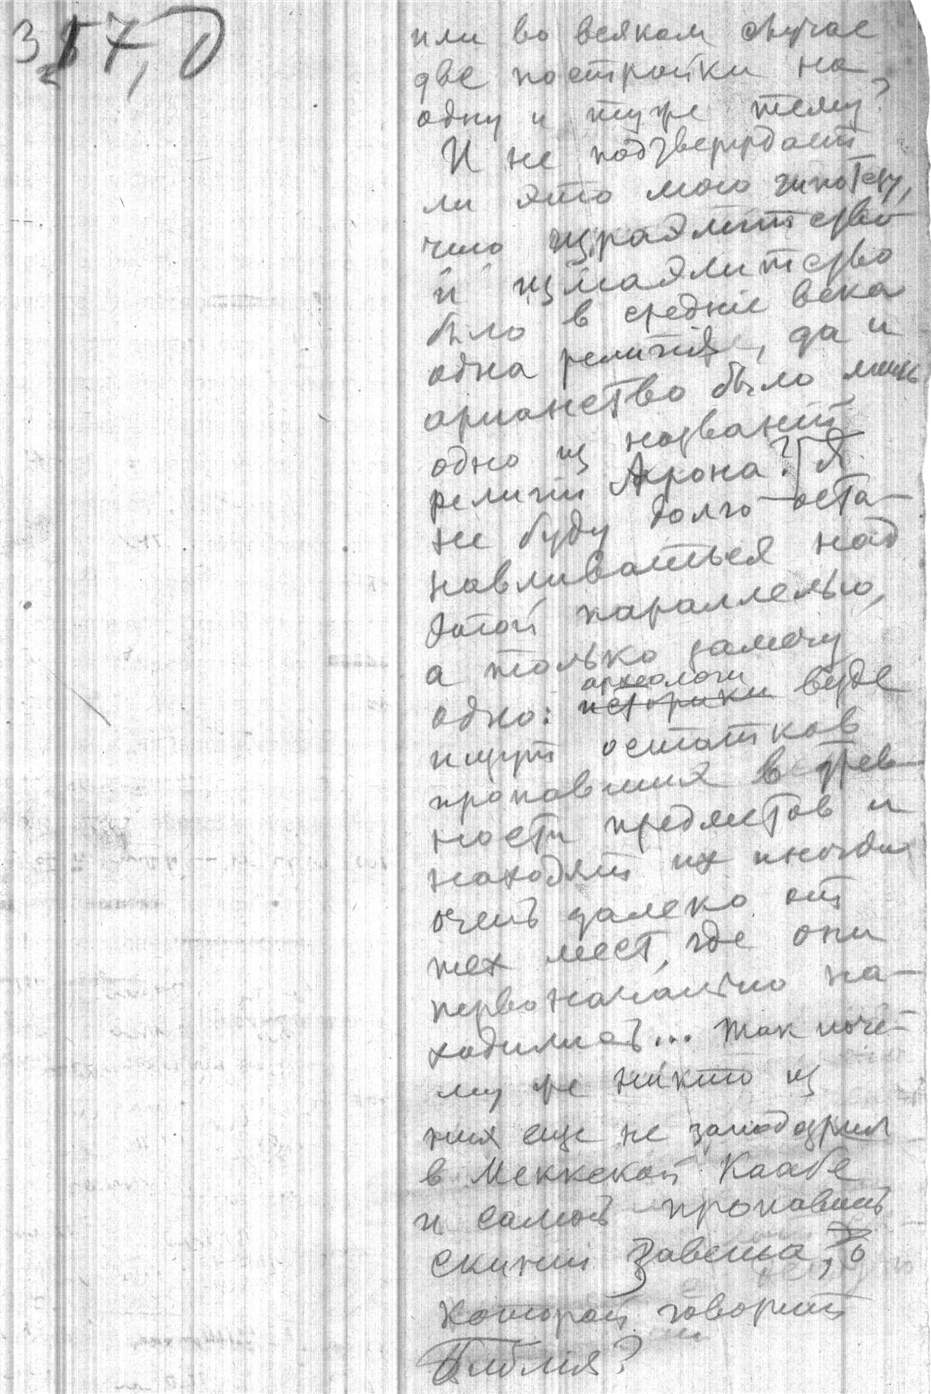 357, D
или во всяком случае
две постройки на
одну и туже тему?
И не подтверждает
ли это мою гипотезу,
что израэлитство
и измаэлитство
было в средние века
одна религия, да и
арианство было лишь
одно из названий
религии Аарона? Я
не буду долго оста-
навливаться над
этой параллелью,
а только замечу
одно: археологи историки везде
ищут остатков
пропавших в древ-
ности предметов и
находят их иногда
очень далеко от
тех мест, где они
первоначально на-
ходились... Так поче-
му же никто из
них еще не заподозрил
в Меккской Каабе
и самой пропавшей
скинии Завета, о
которой говорит
Библия?